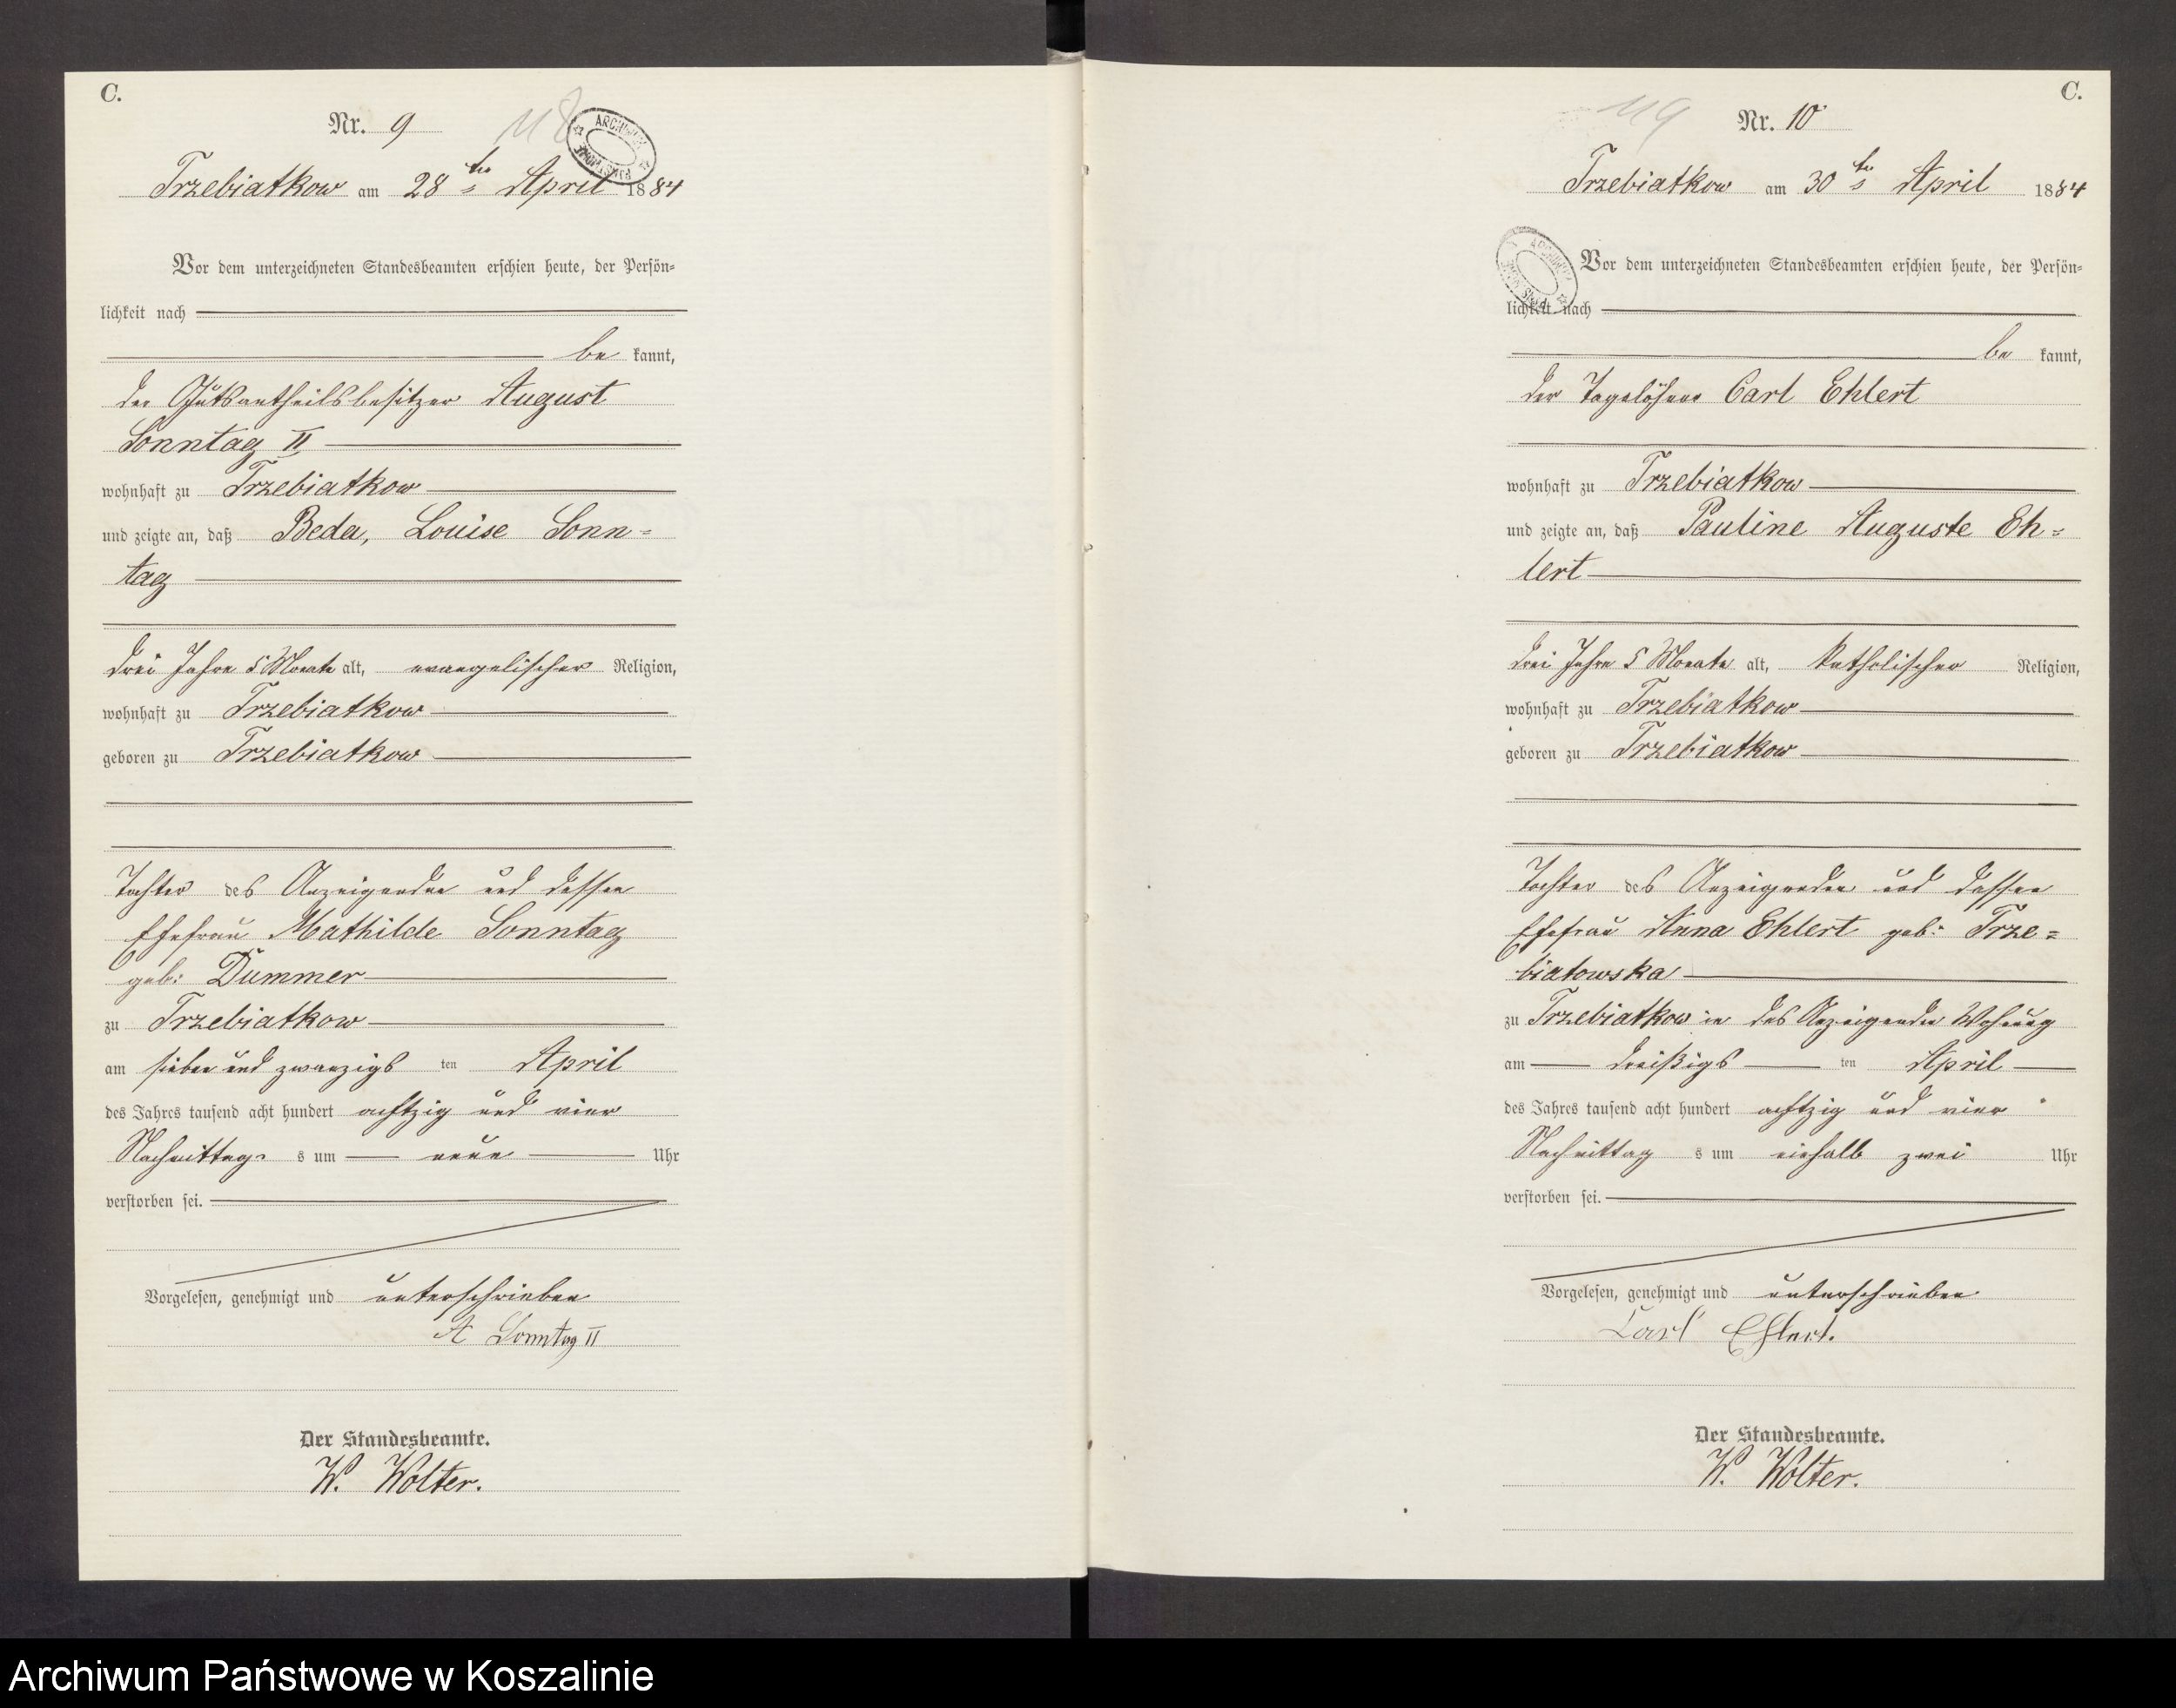 C.
Nr. 9
118
ARCHIWUM PAŃSTWOWE
Trzebiatkow am 28ten April 1884
Vor dem unterzeichneten Standesbeamten erschien heute, der Persön=
lichkeit nach
be kannt,
der Gutsantheilsbesitzer August
Sonntag II
wohnhaft zu Trzebiatkow
und zeigte an, daß Beda, Louise Sonn=
tag
drei Jahre 5 Monate alt, evangelischer Religion,
wohnhaft zu Trzebiatkow
geboren zu Trzebiatkow
Tochter des Anzeigenden und dessen
Ehefrau Mathilde Sonntag
geb: Dummer
zu Trzebiatkow
am sieben und zwanzigs ten April
des Jahres tausend acht hundert achtzig und vier
Nachmittags s um neun Uhr
verstorben sei.
Vorgelesen, genehmigt und unterschrieben
A Sonntag II
Der Standesbeamte.
W. Wolter.
C.
119
Nr. 10
Trzebiatkow am 30ten April 1884
ARCHIWUM
Vor dem unterzeichneten Standesbeamten erschien heute, der Persön=
lichkeit nach
be kannt,
der Tagelöhner Carl Ehlert
wohnhaft zu Trzebiatkow
und zeigte an, daß Pauline Auguste Eh=
lert
drei Jahre 5 Monate alt, katholischer Religion,
wohnhaft zu Trzebiatkow
geboren zu Trzebiatkow
Tochter des Anzeigenden und dessen
Ehefrau Anna Ehlert geb: Trze=
biatowska
zu Trzebiatkow in des Anzeigenden Wohnung
am dreißigs ten April
des Jahres tausend acht hundert achtzig und vier
Nachmittag s um einhalb zwei Uhr
verstorben sei.
Vorgelesen, genehmigt und unterschrieben
Carl Ehlert.
Der Standesbeamte.
W. Wolter.
Archiwum Państwowe w Koszalinie